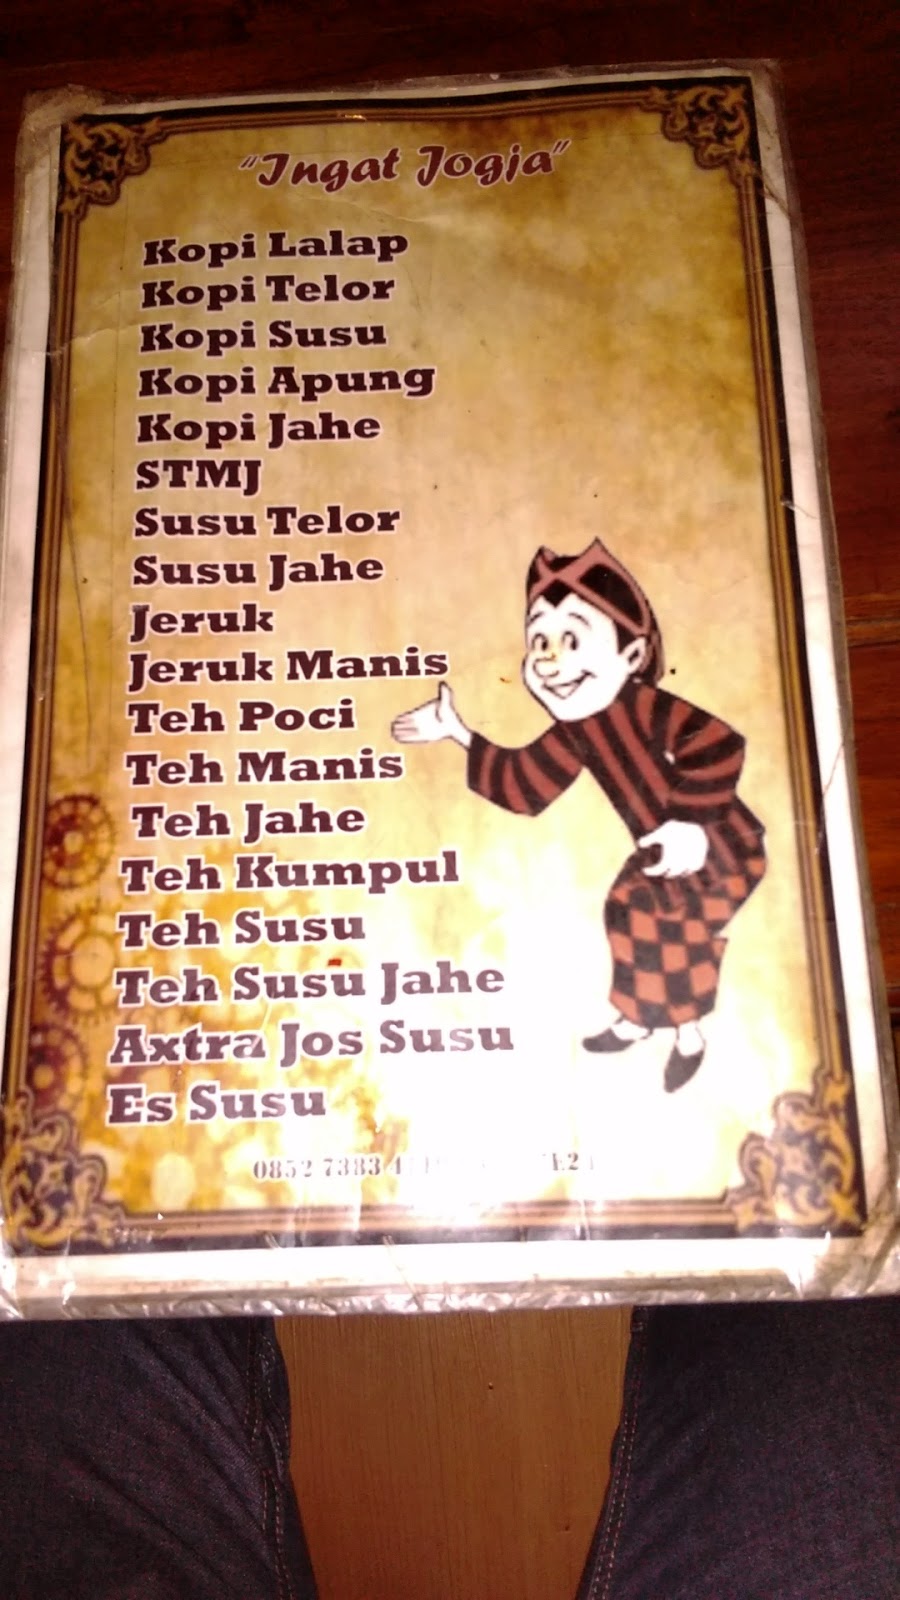 "Ingat Jogja"
Kopi Lalap
Kopi Telor
Kopi Susu
Kopi Apung
Kopi Jahe
STMJ
Susu Telor
Susu Jahe
Jeruk
Jeruk Manis
Teh Poci
Teh Manis
Teh Jahe
Teh Kumpul
Teh Susu
Teh Susu Jahe
Axtra Jos Susu
Es Susu
0852 7383